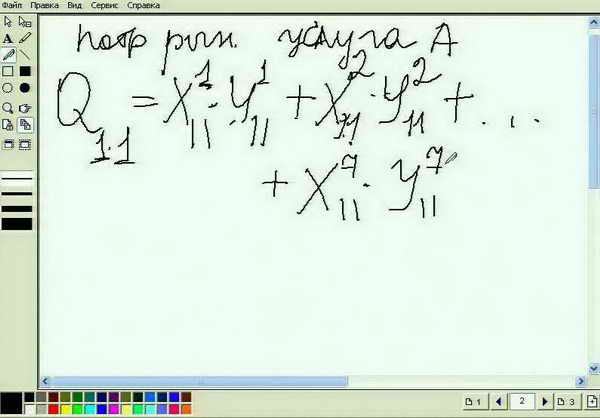 Файл Правка Вид Сервис Справка
потр рын. услуга А
Q₁.₁ = X¹₁₁ · Y¹₁₁ + X²₁₁ · Y²₁₁ + . . .
+ X⁷₁₁ · Y⁷₁₁
A
1 2 3